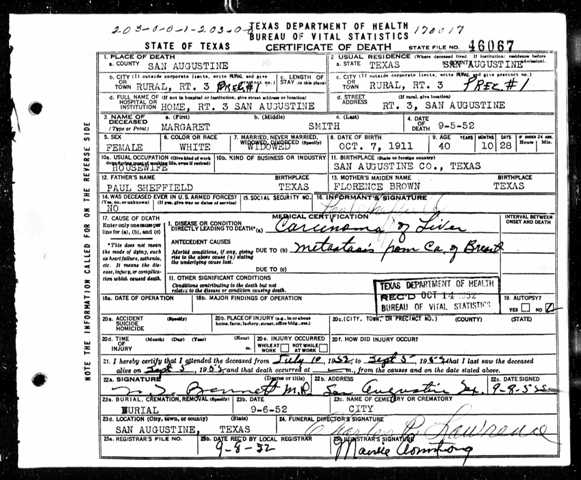 203-0-0-1-203-0-0
TEXAS DEPARTMENT OF HEALTH
170017
BUREAU OF VITAL STATISTICS
STATE OF TEXAS CERTIFICATE OF DEATH STATE FILE NO. 46067
1. PLACE OF DEATH 2. USUAL RESIDENCE (Where deceased lived. If institution: residence before admission)
a. COUNTY SAN AUGUSTINE a. STATE TEXAS SAN AUGUSTINE
b. CITY (If outside corporate limits, write RURAL and give precinct no.) OR TOWN RURAL, RT. 3 Prec #1 c. LENGTH OF STAY (in this place) c. CITY (If outside corporate limits, write RURAL and give precinct no.) OR TOWN RURAL, RT. 3 Prec #1
d. FULL NAME OF (If not in hospital or institution, give street address or location) HOSPITAL OR INSTITUTION HOME, RT. 3 SAN AUGUSTINE d. STREET ADDRESS RT. 3, SAN AUGUSTINE
3. NAME OF DECEASED (Type or Print) a. (First) MARGARET b. (Middle) c. (Last) SMITH 4. DATE OF DEATH 9-5-52
5. SEX FEMALE 6. COLOR OR RACE WHITE 7. MARRIED, NEVER MARRIED, WIDOWED, DIVORCED (Specify) WIDOWED 8. DATE OF BIRTH OCT. 7, 1911 40 10 28
10a. USUAL OCCUPATION (Give kind of work done during most of working life, even if retired) HOUSEWIFE 10b. KIND OF BUSINESS OR INDUSTRY 11. BIRTHPLACE (State or foreign country) SAN AUGUSTINE CO., TEXAS
12. FATHER'S NAME PAUL SHEFFIELD TEXAS 13. MOTHER'S MAIDEN NAME FLORENCE BROWN TEXAS
14. WAS DECEASED EVER IN U.S. ARMED FORCES? NO 15. SOCIAL SECURITY NO. 16. INFORMANT'S SIGNATURE
MEDICAL CERTIFICATION
17. CAUSE OF DEATH Enter only one cause per line for (a), (b), and (c) I. DISEASE OR CONDITION DIRECTLY LEADING TO DEATH* (a) Carcinoma of Liver INTERVAL BETWEEN ONSET AND DEATH
*This does not mean the mode of dying, such as heart failure, asthenia, etc. It means the disease, injury, or complication which caused death. ANTECEDENT CAUSES Morbid conditions, if any, giving rise to the above cause (a) stating the underlying cause last. DUE TO (b) Metastasis from Ca. of Breast
DUE TO (c)
II. OTHER SIGNIFICANT CONDITIONS Conditions contributing to the death but not related to the disease or condition causing death.
TEXAS DEPARTMENT OF HEALTH
REC'D OCT 14 1952
BUREAU OF VITAL STATISTICS
18a. DATE OF OPERATION 18b. MAJOR FINDINGS OF OPERATION 19. AUTOPSY? YES NO
20a. ACCIDENT SUICIDE HOMICIDE (Specify) 20b. PLACE OF INJURY 20c. (CITY, TOWN, OR PRECINCT NO.) (COUNTY) (STATE)
20d. TIME OF INJURY (Month) (Day) (Year) (Hour) 20e. INJURY OCCURRED WHILE AT WORK NOT WHILE AT WORK 20f. HOW DID INJURY OCCUR?
21. I hereby certify that I attended the deceased from July 10, 1952 to Sept 5 1952 that I last saw the deceased
alive on Sept 5, 1952 and that death occurred at m., from the causes and on the date stated above.
22a. SIGNATURE Bennett M.D. (Degree or title) 22b. ADDRESS San Augustine Tex. 22c. DATE SIGNED 9-8-52
23a. BURIAL, CREMATION, REMOVAL (Specify) BURIAL 23b. DATE 9-6-52 23c. NAME OF CEMETERY OR CREMATORY CITY
23d. LOCATION (City, town, or county) (State) SAN AUGUSTINE, TEXAS 24. FUNERAL DIRECTOR'S SIGNATURE Lawrence
25a. REGISTRAR'S FILE NO. 25b. DATE REC'D BY LOCAL REGISTRAR 9-8-52 25c. REGISTRAR'S SIGNATURE Armstrong
NOTE THE INFORMATION CALLED FOR ON THE REVERSE SIDE